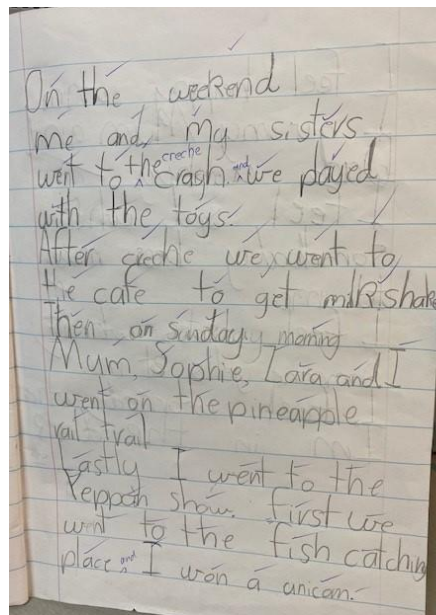 On the weekend
me and my sisters
went to the creche crash and we played
with the toys.
After creche we went to
the cafe to get milkshake
Then on Sunday morning
Mum, Sophie, Lara and I
went on the pineapple
rail trail
Lastly I went to the
Yeppoon show. first we
went to the fish catching
place and I won a unicorn.